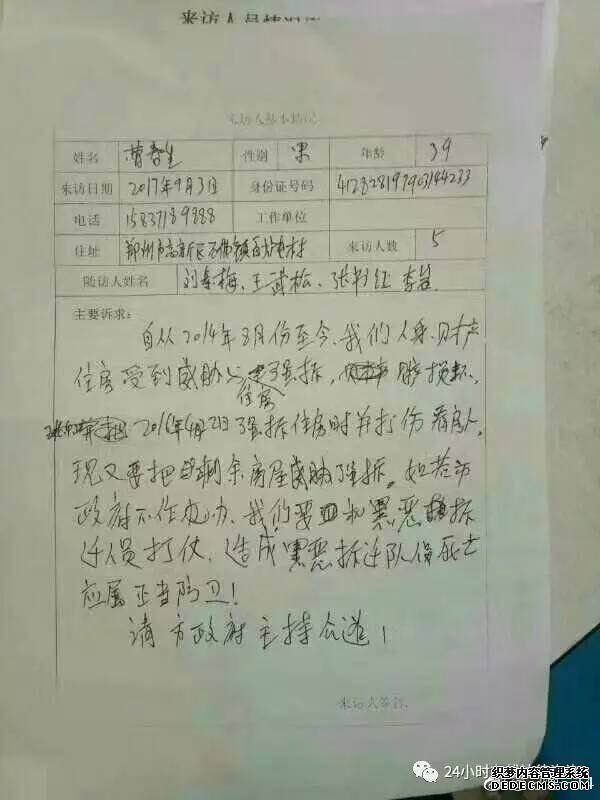 来访人员情况
来访人基本情况
姓名 曹春生 性别 男 年龄 39
来访日期 2017年9月3日 身份证号码
电话 15837189888 工作单位
住址 郑州市高新区石佛镇 村 来访人数 5
随访人姓名 刘春梅、王 松、张 红 李岩
主要诉求:
自从2014年8月份至今、我们人身、财产
住房受到威胁 强拆, 损坏、
住房
2016年4月2日强拆住房时并打伤看房人,
现又要把 剩余房屋威胁强拆。如若市
政府不作为 、我们要 和黑恶 拆
迁人员打仗、造成黑恶拆迁队伤死亡
应属正当防卫!
请 政府主持公道!
来访人签名:
24小时
织梦内容管理系统